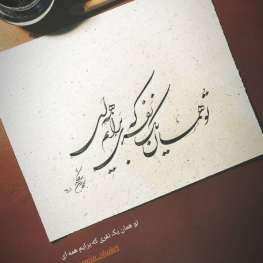 تو همان یک نفری که برایم همه ای
تو همان یک نفری که برایم همه ای